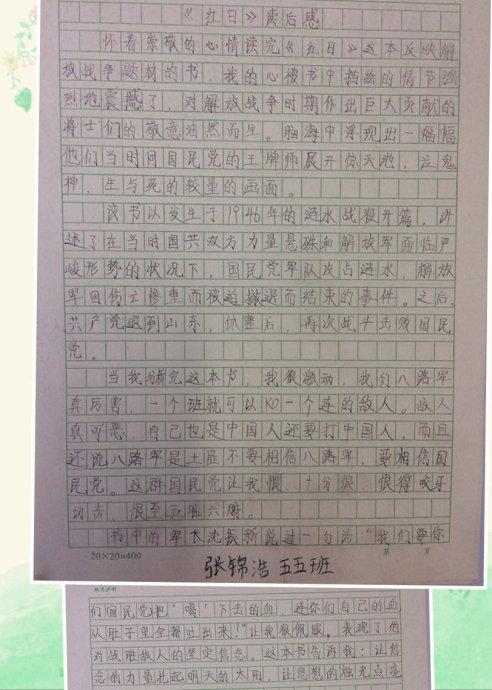 《红日》读后感
怀着崇敬的心情读完《红日》这本反映解
放战争题材的书，我的心被书中描绘的情节强
烈地震撼了，对解放战争时期作出巨大贡献的
将士们的敬意油然而生。脑海中浮现出一幅幅
他们当时同国民党的王牌师展开惊天地，泣鬼
神，生与死的较量的画面。
该书以发生于1946年的涟水战役开篇，讲
述了在当时国共双方力量悬殊和解放军面临严
峻形势的状况下，国民党军队攻占涟水，解放
军因伤亡惨重而被迫撤退而结束的事件。之后，
共产党退到山东，休整后，再次战斗击败国民
党。
当我分析完这本书，我很激动，我们八路军
真厉害，一个班就可以KO一个连的敌人。敌人
真可恶，自己也是中国人还要打中国人，而且
还说八路军是土匪不要相信八路军，要相信国
民党。这群国民党让我恨，十分恨，恨得咬牙
切齿，恨至五脏六腑。
书中的军长沈振新说过一句话：“我们要你
20×20=400
第 页
张锦浩 五五班
们国民党把‘喝’下去的血，还你们自己的血
从肚子里全都吐出来！”让我很佩服，表现了他
对战胜敌人的坚定信念。这本书告诉我：让信
念的力量托起明天的太阳，让思想的烛光点亮